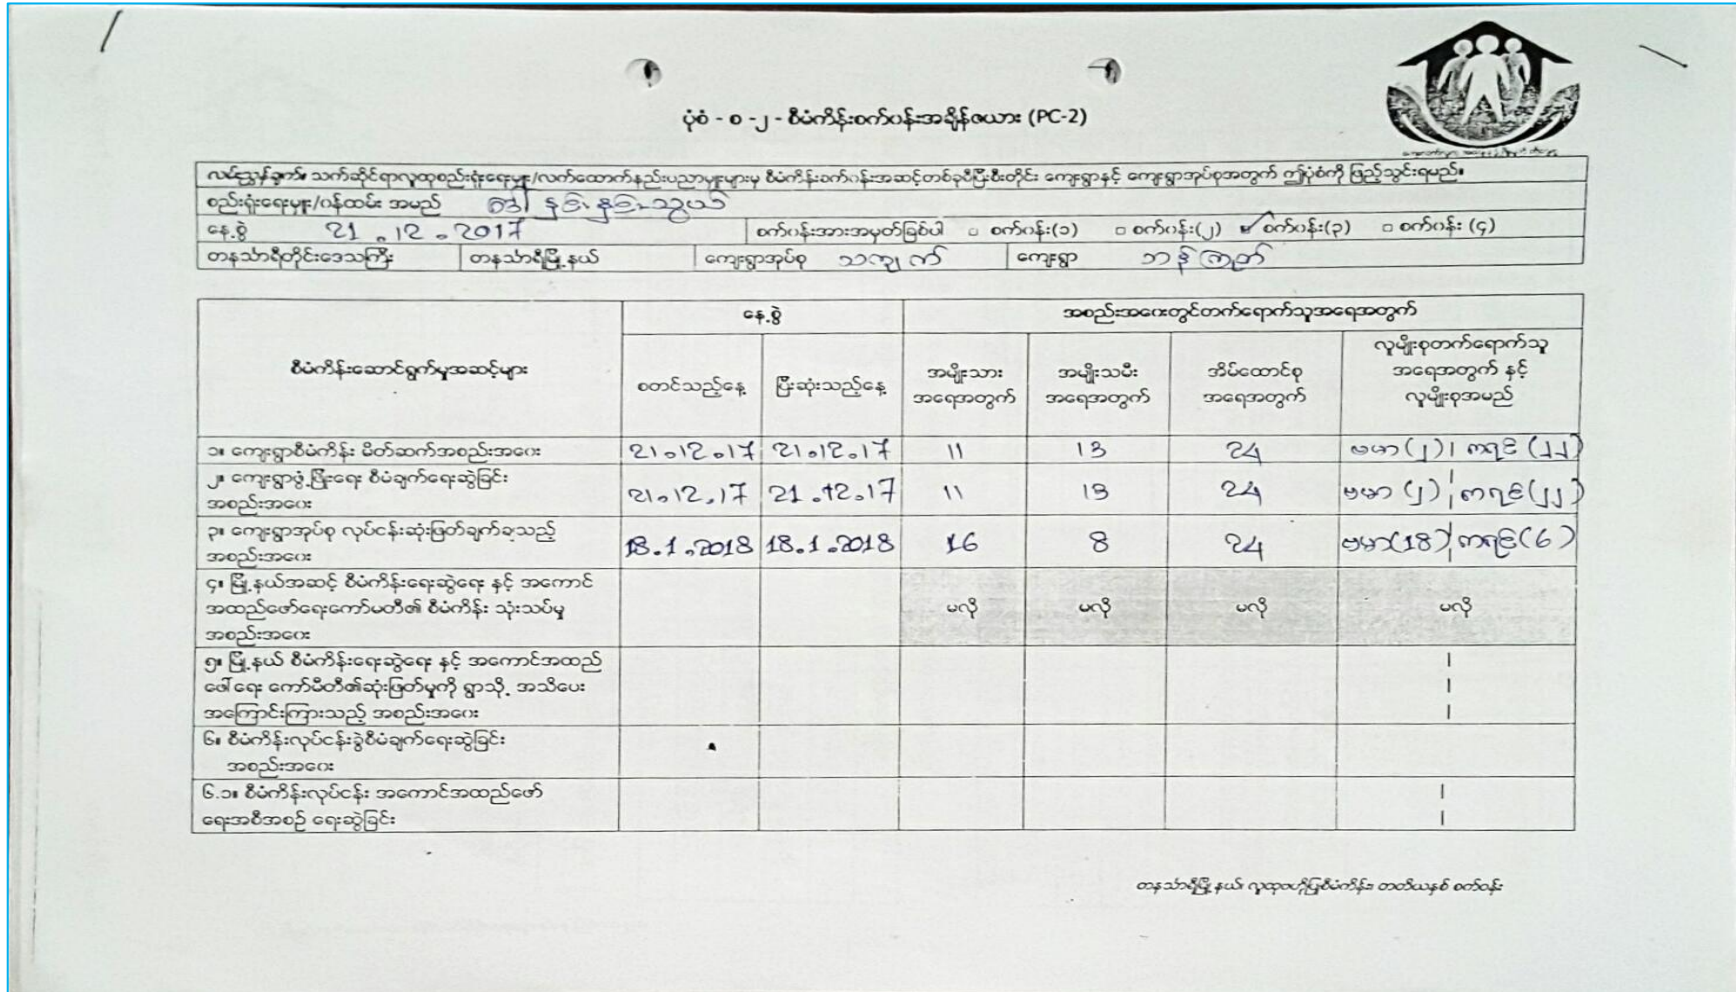 ပုံစံ - စ -၂ - စီမံကိန်းစက်ဝန်းအချိန်ဇယား (PC-2)
လမ်းညွှန်ချက်။ သက်ဆိုင်ရာလူထုစည်းရုံးရေးမှူး/လက်ထောက်နည်းပညာမှူးများမှ စီမံကိန်းစက်ဝန်းအဆင့်တစ်ခုစီပြီးစီးတိုင်း ကျေးရွာနှင့် ကျေးရွာအုပ်စုအတွက် ဤပုံစံကို ဖြည့်သွင်းရမည်။
စည်းရုံးရေးမှူး/ဝန်ထမ်း အမည် ဒေါ်နှင်းနှင်းသွယ်
နေ့စွဲ 21.12.2017 စက်ဝန်းအားအမှတ်ခြစ်ပါ □ စက်ဝန်း(၁) □ စက်ဝန်း(၂) ✓ စက်ဝန်း(၃) □ စက်ဝန်း (၄)
တနင်္သာရီတိုင်းဒေသကြီး တနင်္သာရီမြို့နယ် ကျေးရွာအုပ်စု သကျက် ကျေးရွာ ဘန်ကြတ်
နေ့စွဲ အစည်းအဝေးတွင်တက်ရောက်သူအရေအတွက်
စီမံကိန်းဆောင်ရွက်မှုအဆင့်များ
စတင်သည့်နေ့ ပြီးဆုံးသည့်နေ့
အမျိုးသား
အရေအတွက်
အမျိုးသမီး
အရေအတွက်
အိမ်ထောင်စု
အရေအတွက်
လူမျိုးစုတက်ရောက်သူ
အရေအတွက် နှင့်
လူမျိုးစုအမည်
၁။ ကျေးရွာစီမံကိန်း မိတ်ဆက်အစည်းအဝေး 21.12.17 21.12.17 11 13 24 ဗမာ(၂) ကရင်(၂၂)
၂။ ကျေးရွာဖွံ့ဖြိုးရေး စီမံချက်ရေးဆွဲခြင်း
အစည်းအဝေး 21.12.17 21.12.17 11 13 24 ဗမာ(၂) ကရင်(၂၂)
၃။ ကျေးရွာအုပ်စု လုပ်ငန်းဆုံးဖြတ်ချက်ချသည့်
အစည်းအဝေး 18.1.2018 18.1.2018 16 8 24 ဗမာ(18) ကရင်(6)
၄။ မြို့နယ်အဆင့် စီမံကိန်းရေးဆွဲရေး နှင့် အကောင်
အထည်ဖော်ရေးကော်မတီ၏ စီမံကိန်း သုံးသပ်မှု
အစည်းအဝေး မလို မလို မလို မလို
၅။ မြို့နယ် စီမံကိန်းရေးဆွဲရေး နှင့် အကောင်အထည်
ဖေါ်ရေး ကော်မီတီ၏ဆုံးဖြတ်မှုကို ရွာသို့ အသိပေး
အကြောင်းကြားသည့် အစည်းအဝေး
၆။ စီမံကိန်းလုပ်ငန်းခွဲစီမံချက်ရေးဆွဲခြင်း
အစည်းအဝေး
၆.၁။ စီမံကိန်းလုပ်ငန်း အကောင်အထည်ဖော်
ရေးအစီအစဉ် ရေးဆွဲခြင်း
တနင်္သာရီမြို့နယ်၊ လူထုဗဟိုပြုစီမံကိန်း၊ တတိယနှစ် စက်ဝန်း